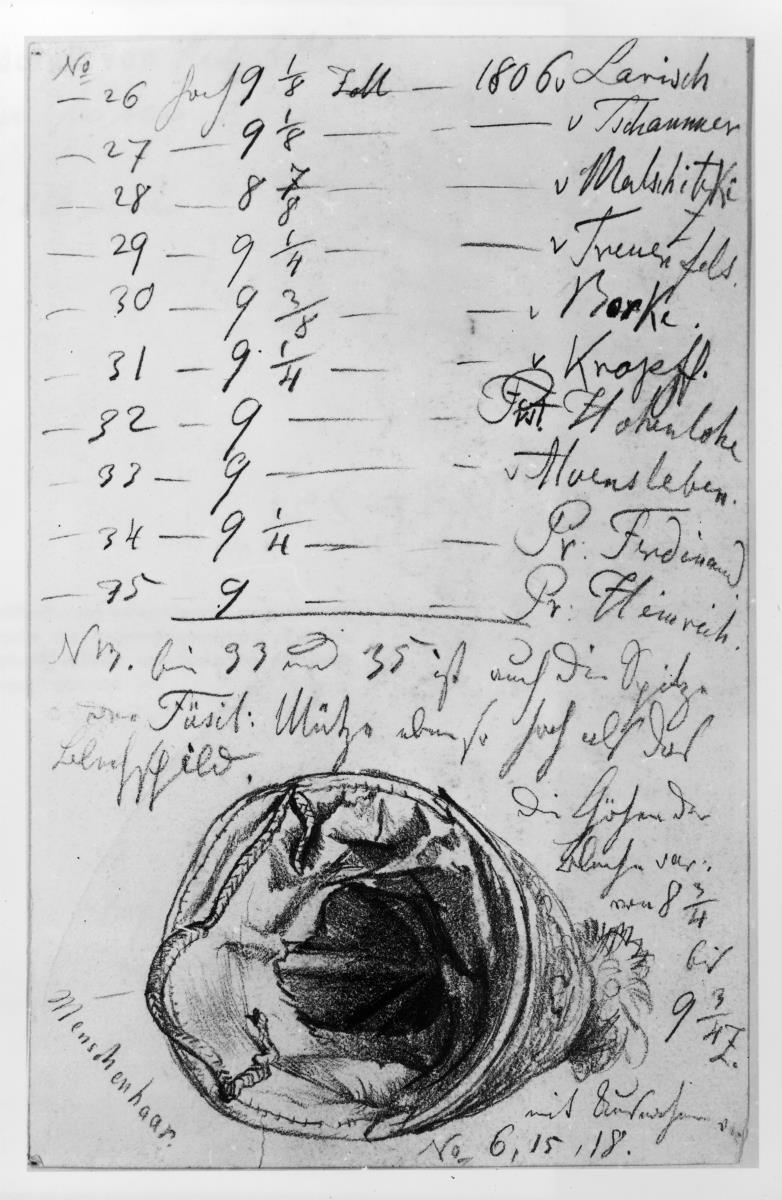 No
— 26 hoch 9 1/8 Zoll — 1806 v Larisch
— 27 — 9 1/8 — — — v Tschammer
— 28 — 8 7/8 — — v Malschitzki
— 29 — 9 1/4 — — v Treuenfels.
— 30 — 9 3/8 — — v Borke.
— 31 — 9 1/4 — — v Kropff.
— 32 — 9 — — Fst. Hohenlohe
— 33 — 9 — — v Alvensleben.
— 34 — 9 1/4 — — — Pr. Ferdinand
— 35 9 — — — Pr. Heinrich.
NB. bei 33 und 35 ist auch die Spitze
der Füsil: Mütze ebenso hoch als das
Blechschild.
die Höhen der
Bleche var:
von 8 3/4
bis
9 3/4 Z.
mit Ausnahme v
No 6, 15, 18.
Menschenhaar.